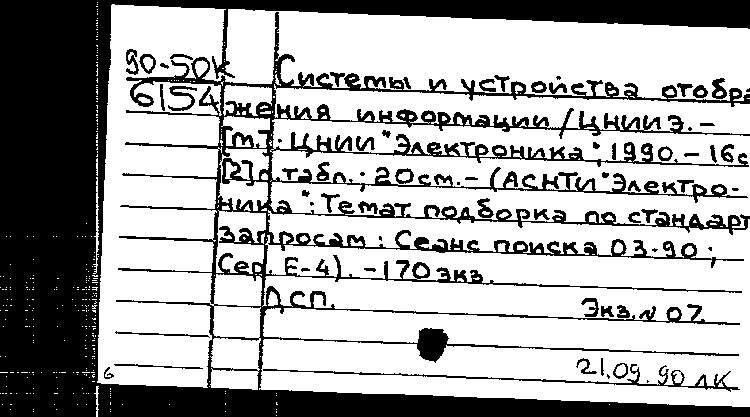 90-50К
6154
Системы и устройства отобра
жения информации / ЦНИИ Э. –
[м.]: ЦНИИ "Электроника", 1990. – 16с
[2]л.табл.; 20см. – (АСНТИ "Электро-
ника": Темат. подборка по стандарт
запросам: Сеанс поиска 03-90;
Сер. Е-4). – 170 экз.
ДСП.
Экз. № 07.
21.09.90 ЛК
6